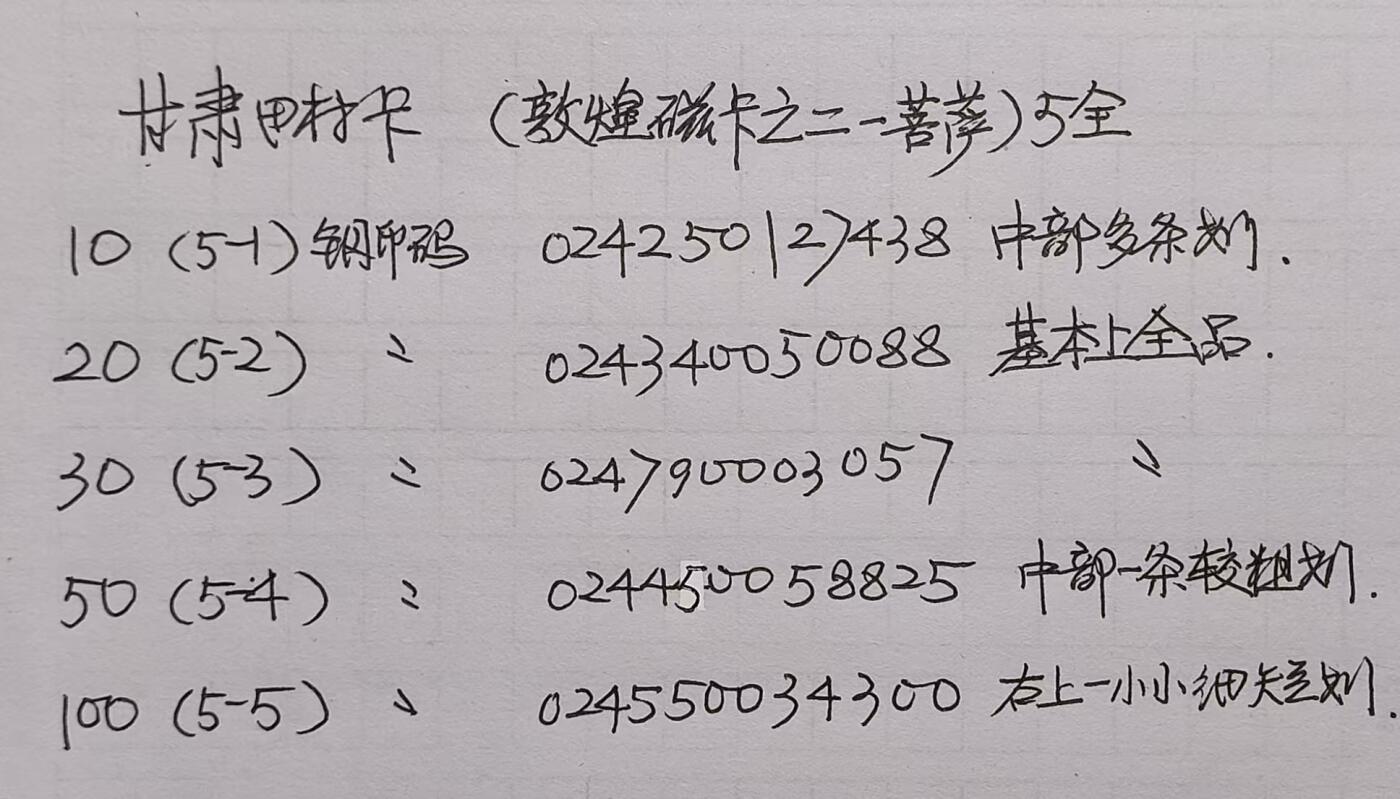 甘肃田村卡 (敦煌磁卡之二-菩萨)5全
10 (5-1) 钢印码 024250127438 中部多条划.
20 (5-2) 〃 024340050088 基本上全品.
30 (5-3) 〃 024790003057 〃
50 (5-4) 〃 024450058825 中部一条较粗划.
100 (5-5) 〃 024550034300 右上一小小细短划.